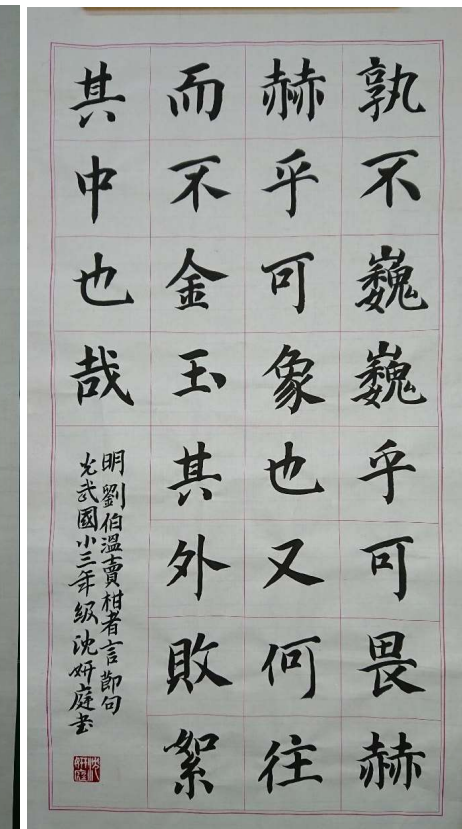 孰不巍巍乎可畏赫
赫乎可象也又何往
而不金玉其外敗絮
其中也哉
明劉伯溫賣柑者言節句
光武國小三年級沈妍庭書